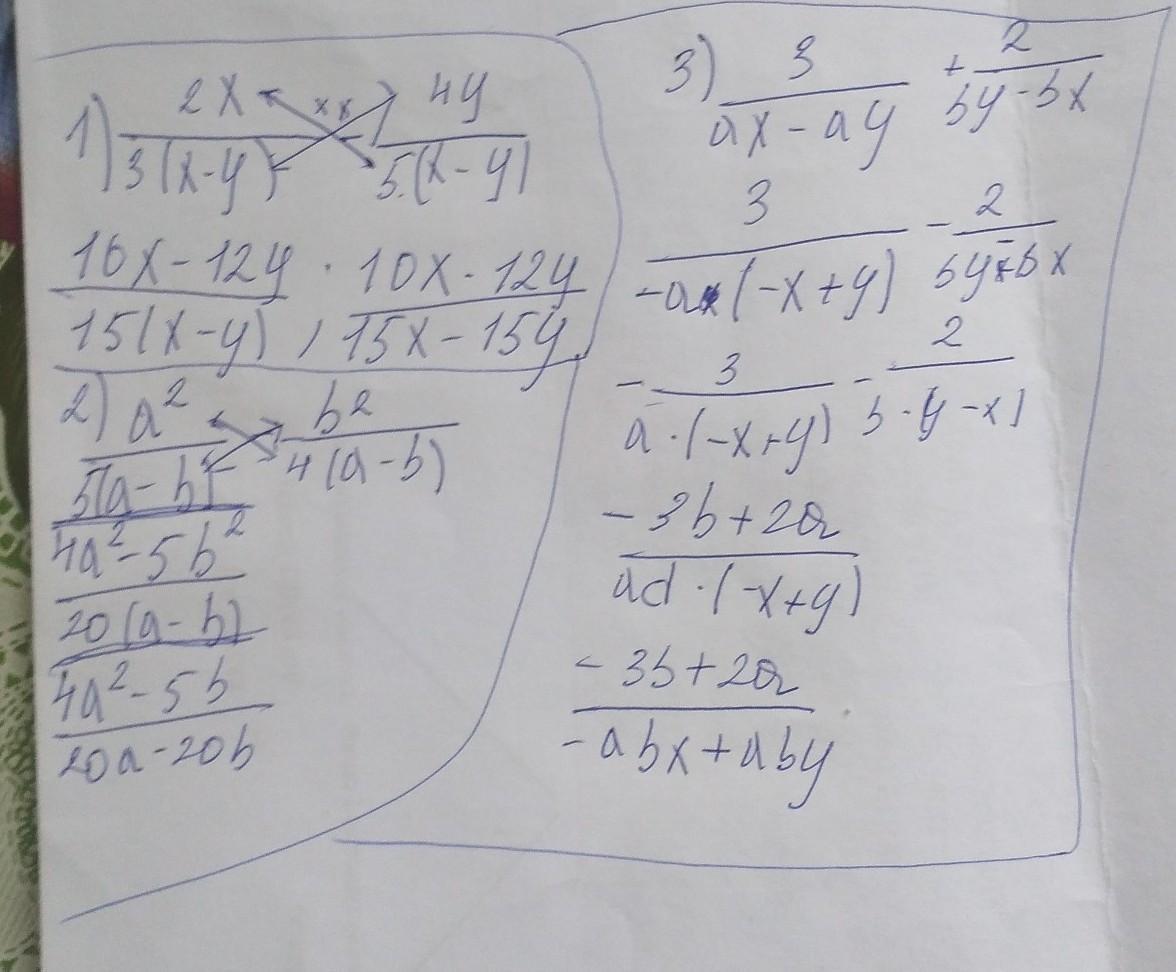 1) 2x/3(x-y) - 4y/5.(x-y)
10x-12y/15(x-y) ; 10x-12y/15x-15y
2) a²/5(a-b) - b²/4(a-b)
4a²-5b²/20(a-b)
4a²-5b/20a-20b
3) 3/ax-ay + 2/by-bx
3/-a(-x+y) - 2/by-bx
- 3/a·(-x+y) - 2/b·y-x)
-3b+2a/ad·(-x+y)
-3b+2a/-abx+aby